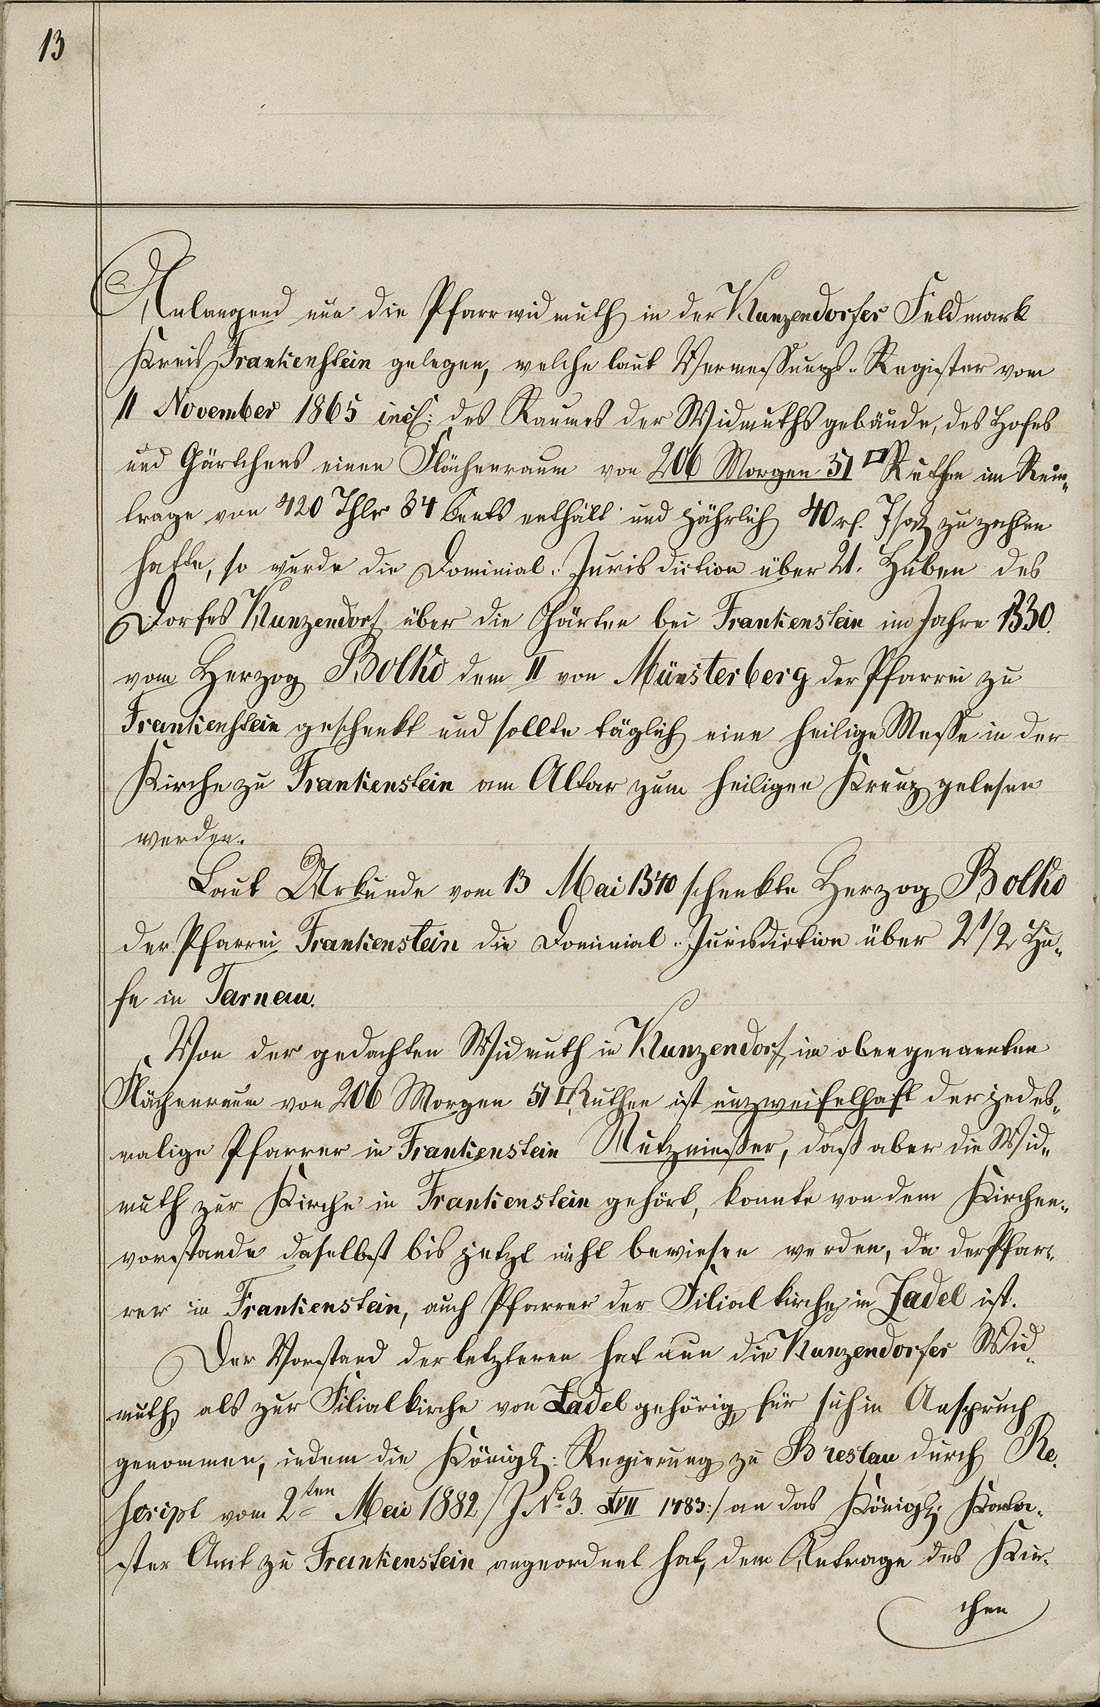 13
Anlangend nun die Pfarrwidmuth in der Kunzendorfer Feldmark
Kreis Frankenstein gelegen, welche laut Vermessungs-Register vom
11 November 1865 incl: des Raumes der Widmuthsgebäude, des Hofes
und Gärtchens einen Flächenraum von 206 Morgen 51 □ Ruthen im Rein-
trage von 420 Thlr 84 Cents enthält und jährlich 40 rf. zu zahlen
hatte, so wurde die Dominial-Jurisdiction über 21. Huben des
Dorfes Kunzendorf über die Gärten bei Frankenstein im Jahre 1330.
vom Herzog Bolko dem II von Münsterberg der Pfarrei zu
Frankenstein geschenkt und sollte täglich eine heilige Messe in der
Kirche zu Frankenstein am Altar zum heiligen Kreuz gelesen
werden.
Laut Urkunde vom 13 Mai 1340 schenkte Herzog Bolko
der Pfarrei Frankenstein die Dominial-Jurisdiction über 2 1/2 Hu-
fe in Tarnau.
Von der gedachten Widmuth in Kunzendorf im obengenannten
Flächenraum von 206 Morgen 51 □ Ruthen ist unzweifelhaft der jedes-
malige Pfarrer in Frankenstein Nutznießer, daß aber die Wid-
muth zur Kirche in Frankenstein gehört, konnte von dem Kirchen-
vorstande daselbst bis jetzt nicht bewiesen werden, da der Pfar-
rer in Frankenstein, auch Pfarrer der Filialkirche in Zadel ist.
Der Vorstand der letzteren hat nun die Kunzendorfer Wid-
muth als zur Filialkirche von Zadel gehörig für sich in Anspruch
genommen, indem die Königl: Regierung zu Breslau durch Re-
script vom 2ten Mai 1882 /: J No 3. XVII 1783:/ an das Königl: Kata-
ster Amt zu Frankenstein angeordnet hat, dem Antrage des Kir-
chen